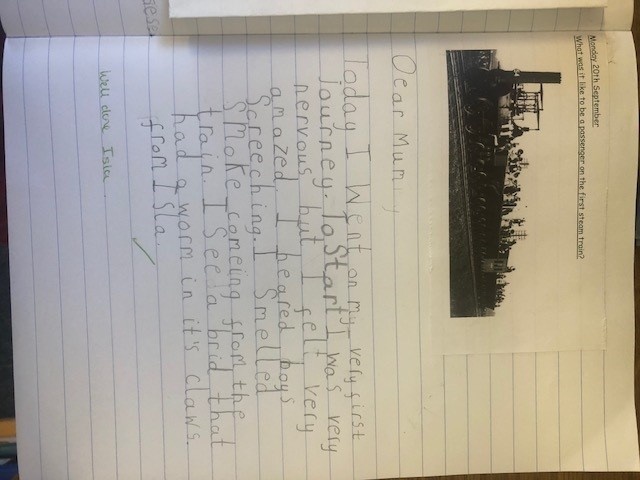 Monday 20th September
What was it like to be a passenger on the first steam train?
Dear Mum,
Today I went on my very first
journey. To Start I was very
nervous but I felt very
amazed. I heared boys
Screeching. I Smelled
Smoke comeing from the
train. I See a brid that
had a worm in it's claws.
from Isla.
Well done Isla.